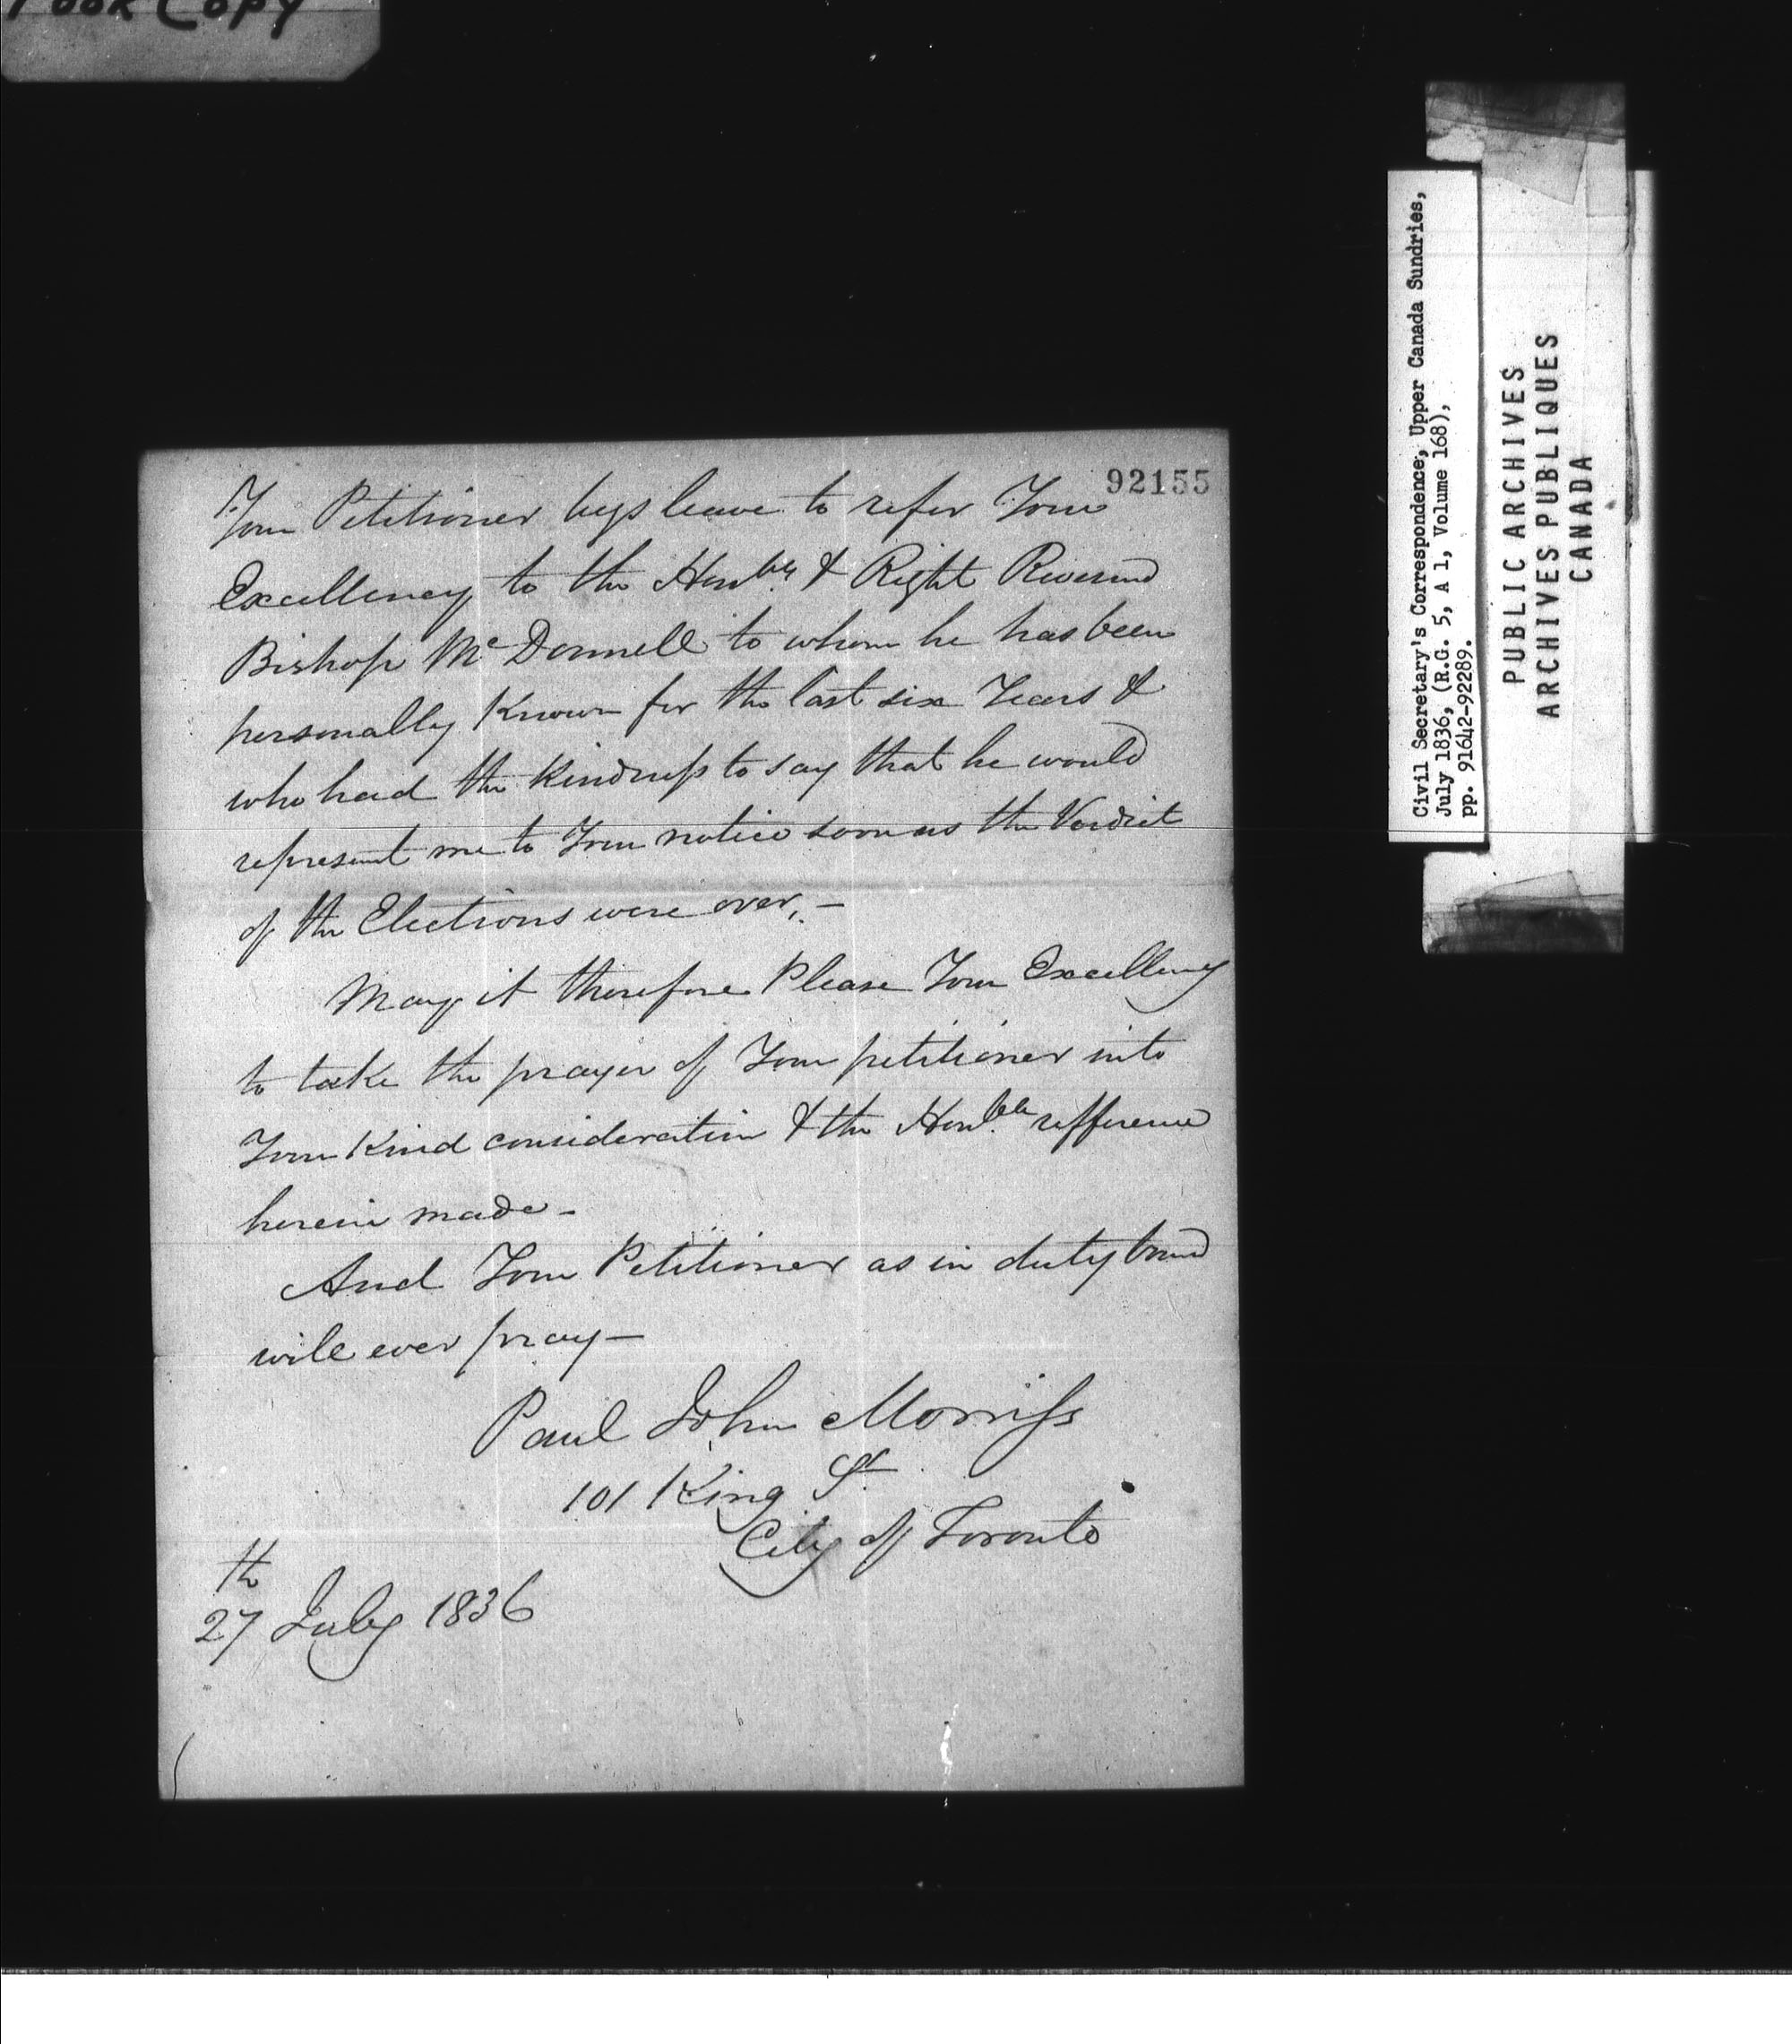 Poor Copy
92155
Your Petitioner begs leave to refer Your
Excellency to the Honble. & Right Reverend
Bishop Mc Donnell to whom he has been
personally Known for the last six Years &
who had the Kindness to say that he would
represent me to Your notice soon as the Verdict
of the Elections were over. –
May it therefore Please Your Excellency
to take the prayer of Your petitioner into
Your Kind consideration & the Honble. refference
herein made –
And Your Petitioner as in duty bound
will ever pray –
Paul John Morriss
101 King St.
City of Toronto
27th July 1836
Civil Secretary's Correspondence, Upper Canada Sundries,
July 1836, (R.G. 5, A 1, Volume 168),
pp. 91642-92289.
PUBLIC ARCHIVES
ARCHIVES PUBLIQUES
CANADA